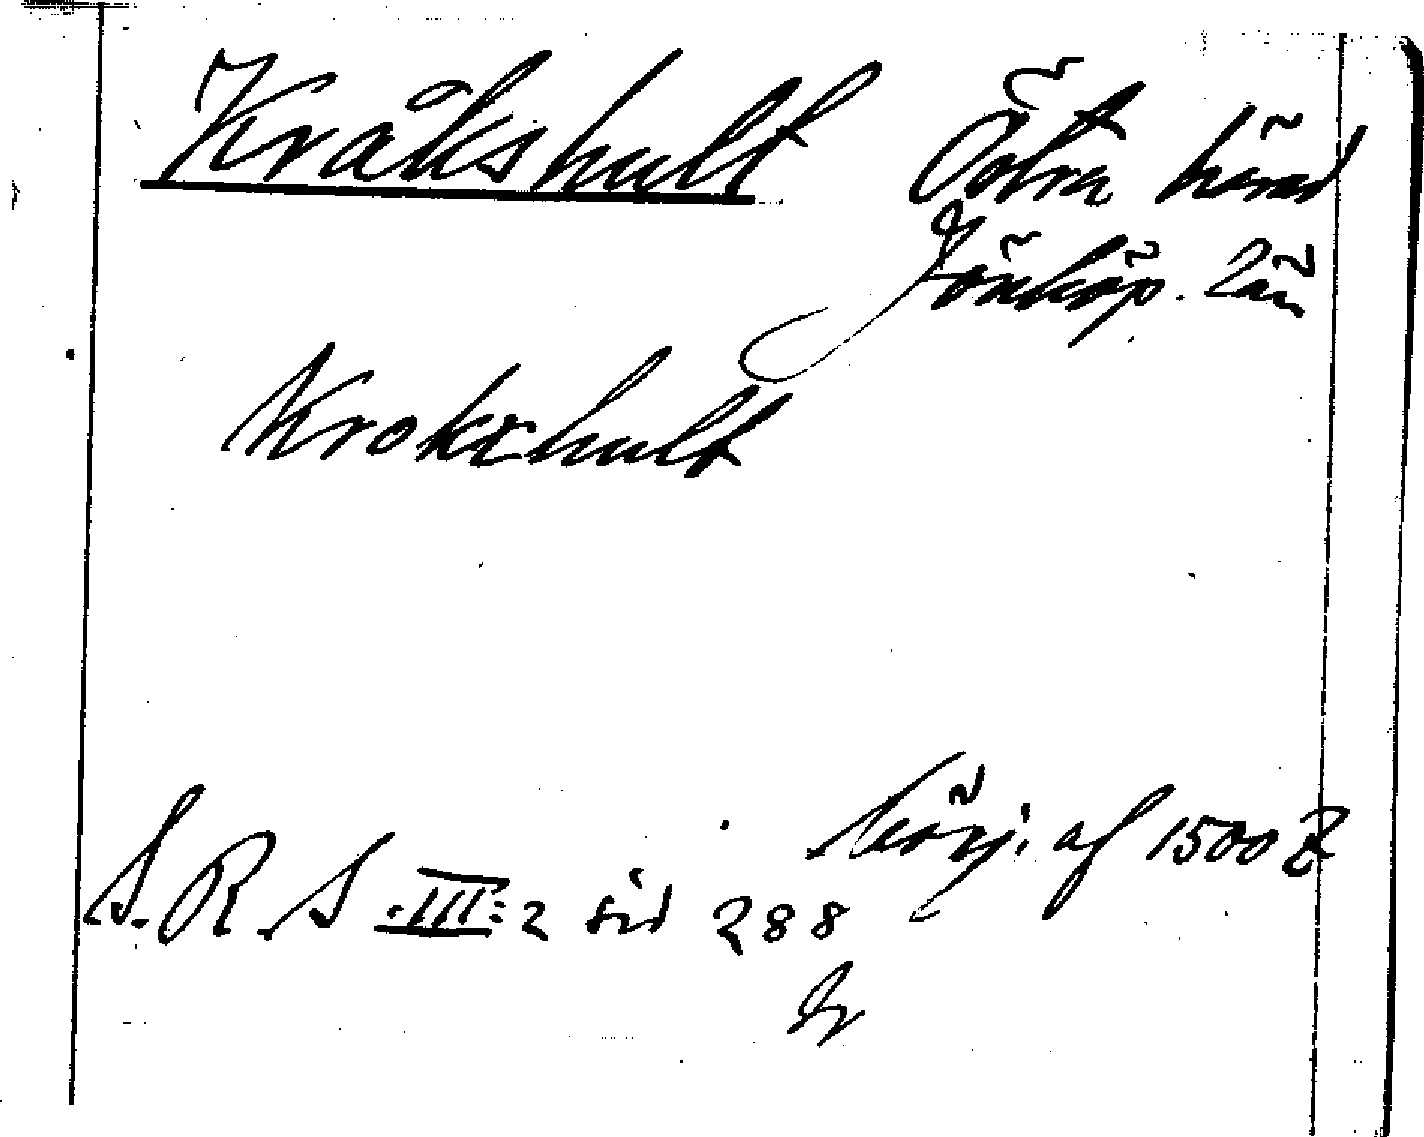 Kråkshult Östra härad
Jönköp. län
Krokshult
börj. af 1500 t
S. R. S. III:2 sid 288